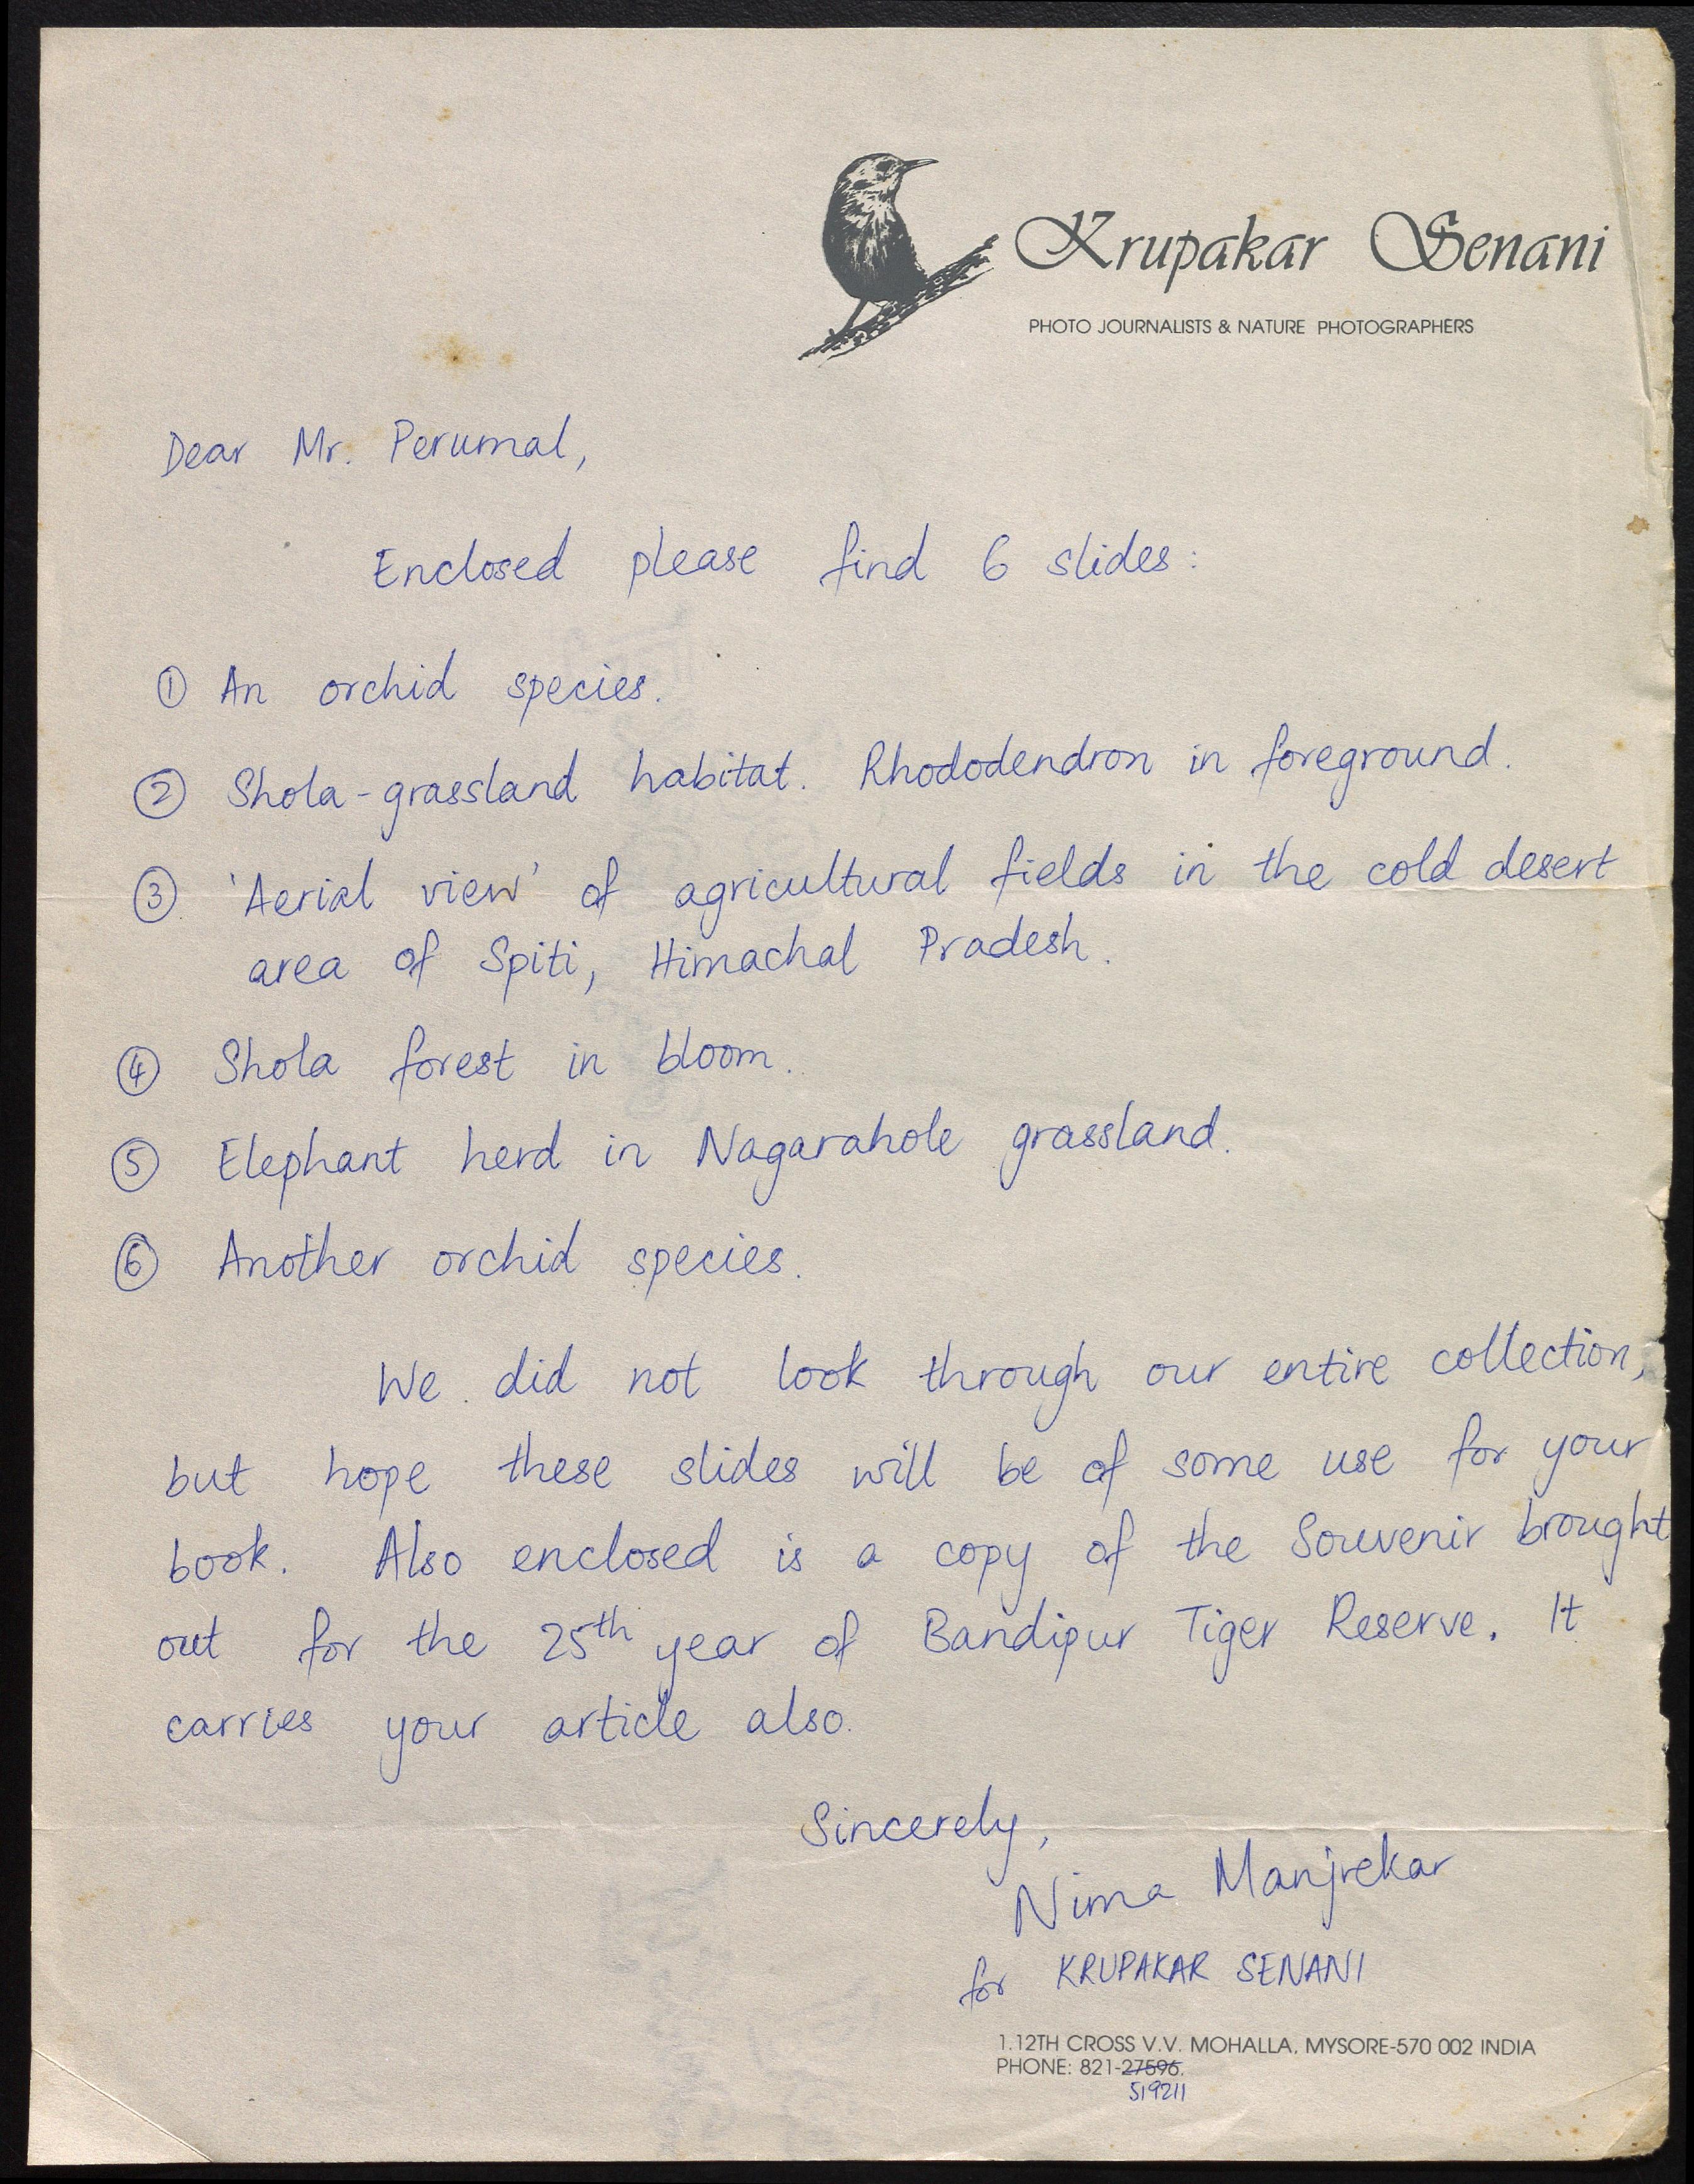 Krupakar Senani
PHOTO JOURNALISTS & NATURE PHOTOGRAPHERS
Dear Mr. Perumal,
Enclosed please find 6 slides:
① An orchid species.
② Shola-grassland habitat. Rhododendron in foreground.
③ 'Aerial view' of agricultural fields in the cold desert
area of Spiti, Himachal Pradesh.
④ Shola forest in bloom.
⑤ Elephant herd in Nagarahole grassland.
⑥ Another orchid species.
We did not look through our entire collection,
but hope these slides will be of some use for your
book. Also enclosed is a copy of the Souvenir brought
out for the 25th year of Bandipur Tiger Reserve. It
carries your article also.
Sincerely,
Nima Manjrekar
for KRUPAKAR SENANI
1.12TH CROSS V.V. MOHALLA, MYSORE-570 002 INDIA
PHONE: 821-27596.
519211